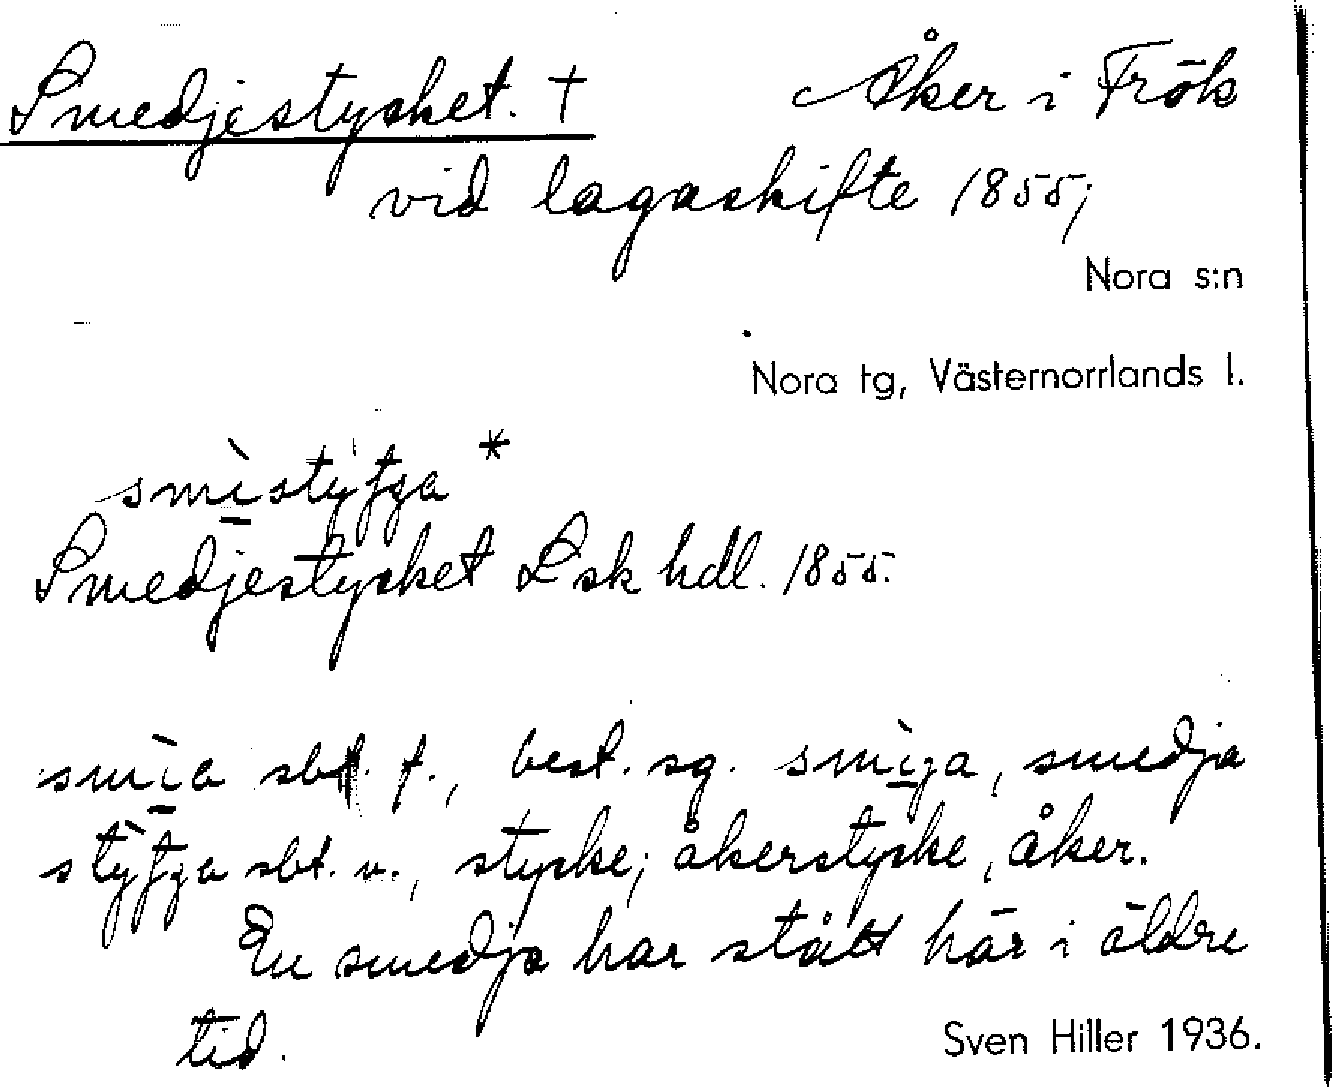 Smedjestycket. † Åker i Frök
vid lagaskifte 1855;
Nora s:n
Nora tg, Västernorrlands l.
Smedjestycket Lsk hdl. 1855.
smia sbt. f., best. sg. smija, smedja
sbt. n., stycke; åkerstycke, åker.
En smedja har stått här i äldre
tid.
Sven Hiller 1936.